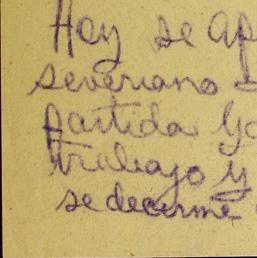 Hoy se ap
severiano
partida Yo
trabajo y
se decerme